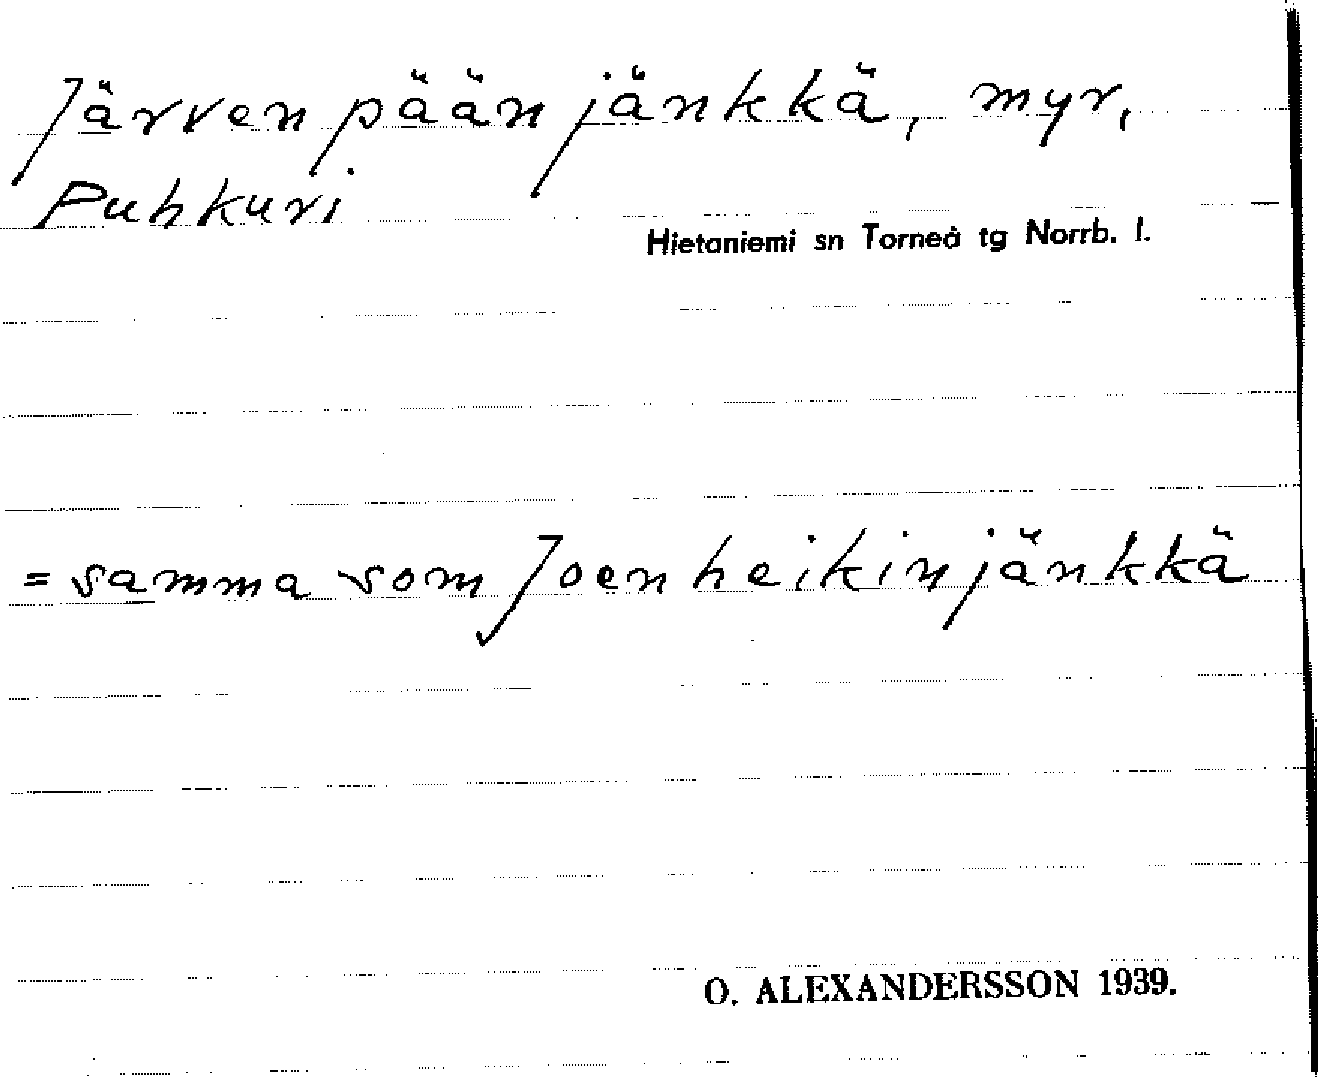 Järvenpäänjänkkä, myr,
Puhkuri
Hietaniemi sn Torneå tg Norrb. l.
= samma som Joenheikinjänkkä
O. ALEXANDERSSON 1939.